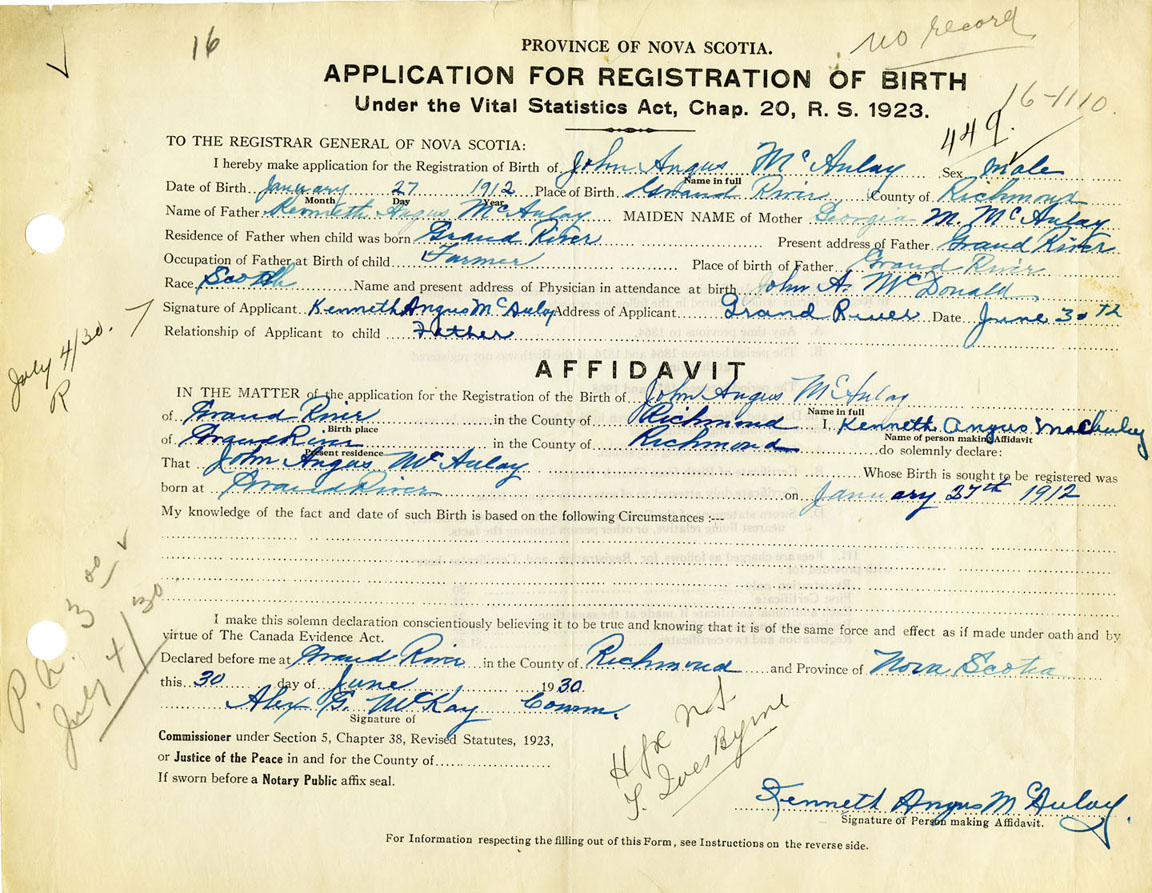 16
no record
PROVINCE OF NOVA SCOTIA.
APPLICATION FOR REGISTRATION OF BIRTH
Under the Vital Statistics Act, Chap. 20, R. S. 1923.
16-1110.
449.
TO THE REGISTRAR GENERAL OF NOVA SCOTIA:
I hereby make application for the Registration of Birth of John Angus McAulay Sex Male
Name in full
Date of Birth January 27 1912 Place of Birth Grand River County of Richmond
Month Day Year
Name of Father Kenneth Angus McAulay MAIDEN NAME of Mother Georgia M. McAulay
Residence of Father when child was born Grand River Present address of Father Grand River
Occupation of Father at Birth of child Farmer Place of birth of Father Grand River
Race Scotch Name and present address of Physician in attendance at birth John A. McDonald
Signature of Applicant Kenneth Angus McAulay Address of Applicant Grand River Date June 30th
Relationship of Applicant to child Father
July 4/30.
R
AFFIDAVIT
IN THE MATTER of the application for the Registration of the Birth of John Angus McAulay
Name in full
of Grand River in the County of Richmond I, Kenneth Angus MacAuley
Birth place
Name of person making Affidavit
of Grand River in the County of Richmond do solemnly declare:
Present residence
That John Angus McAulay Whose Birth is sought to be registered was
born at Grand River on January 27th 1912
My knowledge of the fact and date of such Birth is based on the following Circumstances :---
P.R. 3 00
July 4/30
I make this solemn declaration conscientiously believing it to be true and knowing that it is of the same force and effect as if made under oath and by
virtue of The Canada Evidence Act.
Declared before me at Grand River in the County of Richmond and Province of Nova Scotia
this 30 day of June 1930.
Alex G. McKay Comm.
Signature of
Commissioner under Section 5, Chapter 38, Revised Statutes, 1923,
or Justice of the Peace in and for the County of
If sworn before a Notary Public affix seal.
Hfx N.S.
Ives Byrne
Kenneth Angus McAulay.
Signature of Person making Affidavit.
For Information respecting the filling out of this Form, see Instructions on the reverse side.